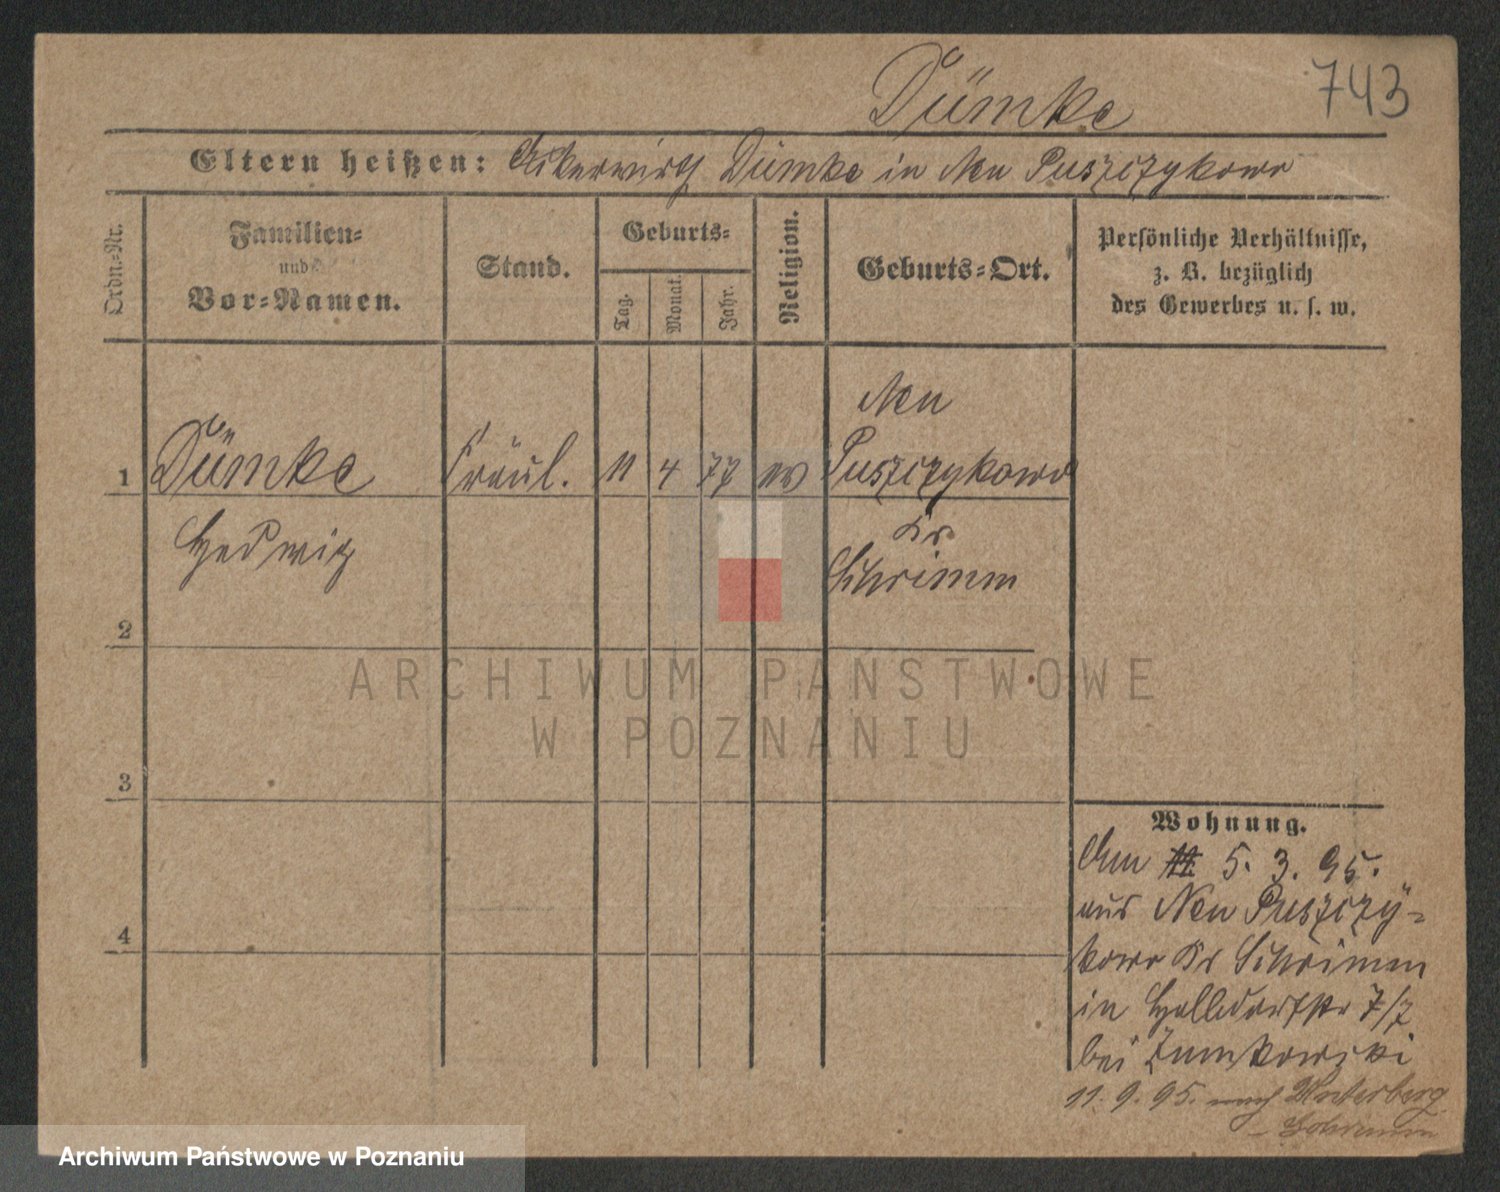 Dümke 743
Eltern heißen: Ackerwirth Dümke in Neu Puszczykowo
Ordn.-Nr.
Familien-
und
Vor-Namen.
Stand.
Geburts-
Tag.
Monat.
Jahr.
Religion.
Geburts-Ort.
Persönliche Verhältnisse,
z. B. bezüglich
des Gewerbes u. s. w.
Neu
1 Dümke Fräul. 11 4 77 ev Puszczykowo
Hedwig
Kr
Schrimm
2
3
4
Wohnung.
5. 3. 95.
aus Neu Puszczy-
kowo Kr Schrimm
in Halldorfstr 7/7
bei
11. 9. 95. nach Unterberg
Schrimm
ARCHIWUM PAŃSTWOWE
W POZNANIU
Archiwum Państwowe w Poznaniu